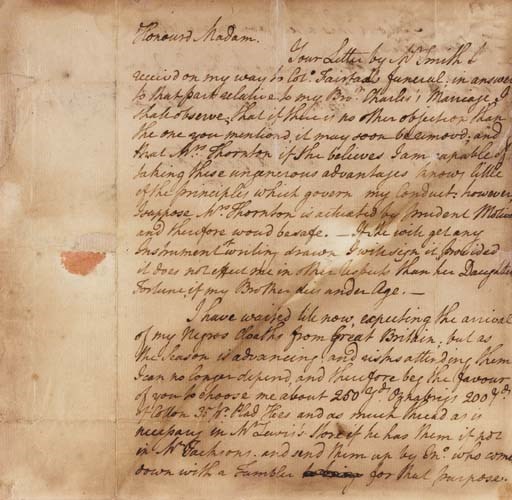 Honourd Madam.
Your Letter by Mr Smith I
receivd on my way to Colo. Fairfax's funeral: in answer
to that part relative to my Bror. Charles's Marriage I
shall observe, that if there is no other objection than
the one you mentiond, it may soon be removd; and
that Mrs Thornton if She believes I am capable of
taking these ungenerous advantages knows little
of the principles which govern my Conduct: however
I suppose Mrs Thornton is actuated by prudent Motives
and therefore would be safe. — If She will get any
Instrument of writing drawn I will sign it provided
it does not effect me in other respects than her Daughters
Fortune if my Brother dies under Age. —
I have waited till now, expecting the arrival
of my Negros Cloaths from Great Britain; but as
the Season is advancing, and risks attending them
I can no longer depend, and therefore beg the favour
of you to choose me about 250 Yds Oznabrigs 200 yds
of Cotton 35 pr Plad Hose and as much thread as is
necessary in Mr Lewis's Store if he has them if not
in Mr Jacksons and send them up by who comes
down with a Tumbler for that purpose.